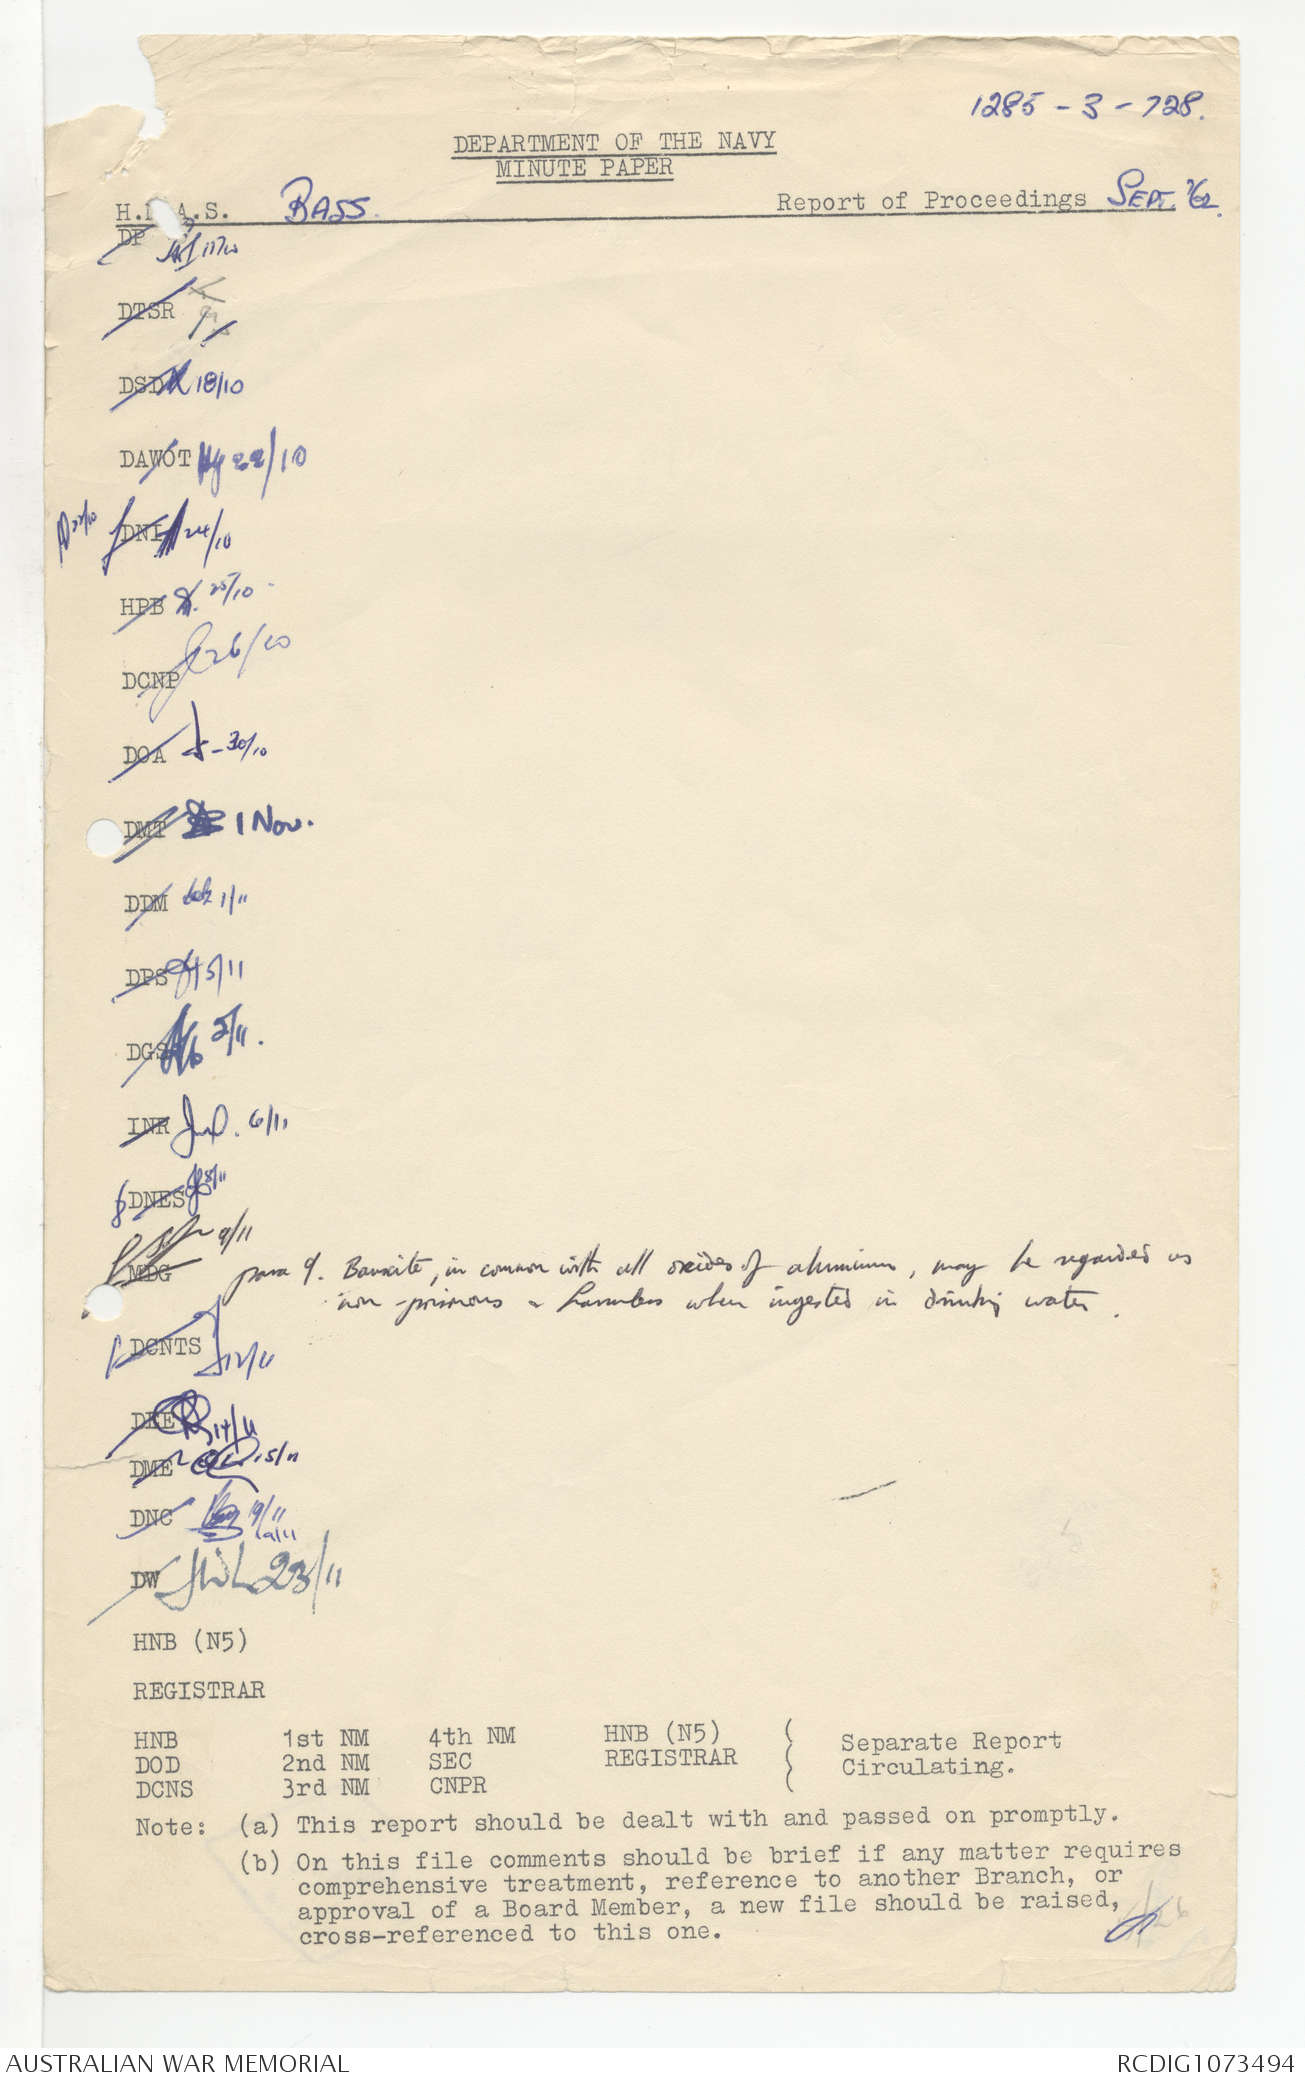 1285-3-728.
DEPARTMENT OF THE NAVY
MINUTE PAPER
H. A.S. BASS. Report of Proceedings SEPT. '62.
DP
DTSR
DSD 18/10
DAWOT 22/10
22/10 DNI 24/10
HPB 25/10
DCNP 26/10
DOA 30/10
DMT 1 Nov.
DDM 1/11
DPS 5/11
DGS 5/11.
INR 6/11
DNES 8/11
9/11
MDG para 9. Bauxite, in common with all oxides of aluminium, may be regarded as
non-poisonous & harmless when ingested in drinking water.
DCNTS 12/11
DEE 14/11
DME 15/11
DNC 19/11
19/11
DW 23/11
HNB (N5)
REGISTRAR
HNB 1st NM 4th NM HNB (N5) Separate Report
DOD 2nd NM SEC REGISTRAR Circulating.
DCNS 3rd NM CNPR
Note: (a) This report should be dealt with and passed on promptly.
(b) On this file comments should be brief if any matter requires
comprehensive treatment, reference to another Branch, or
approval of a Board Member, a new file should be raised,
cross-referenced to this one.
AUSTRALIAN WAR MEMORIAL RCDIG1073494